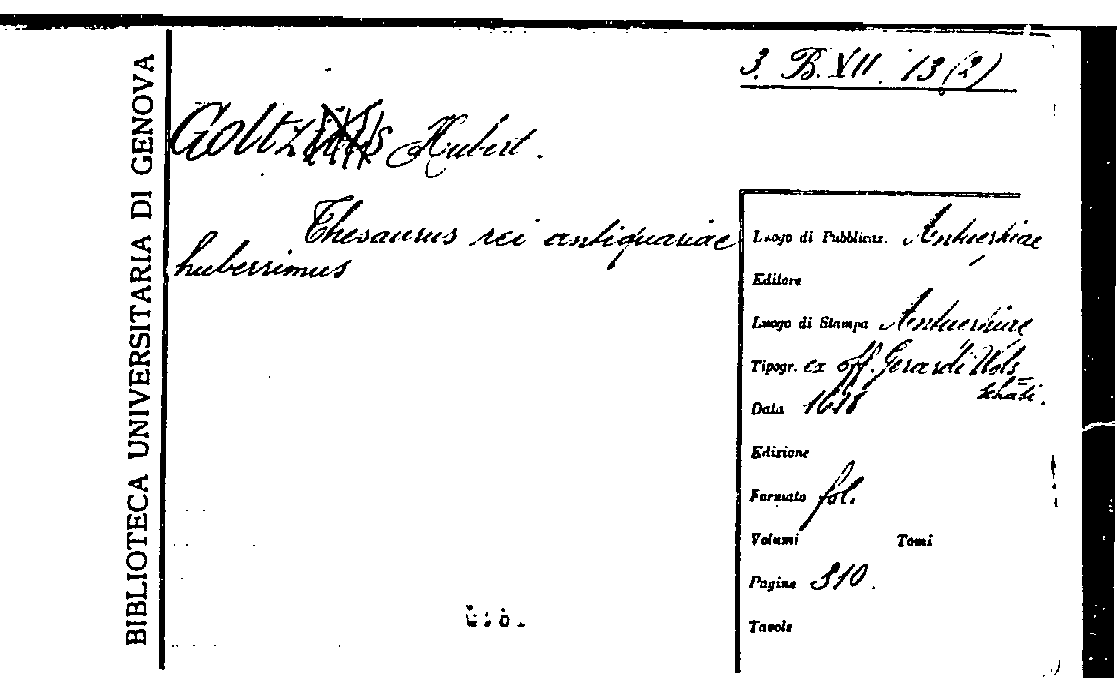 BIBLIOTECA UNIVERSITARIA DI GENOVA
3. B. XII. 13 (2)
Goltz Hubert.
Thesaurus rei antiquariae
huberrimus
Luogo di Pubblicaz. Antuerpiae
Editore
Luogo di Stampa Antuerpiae
Tipogr. ex off. Gerardi Wols
schati.
Data
Edizione
Formato fol.
Volumi Tomi
Pagine 310.
Tavole